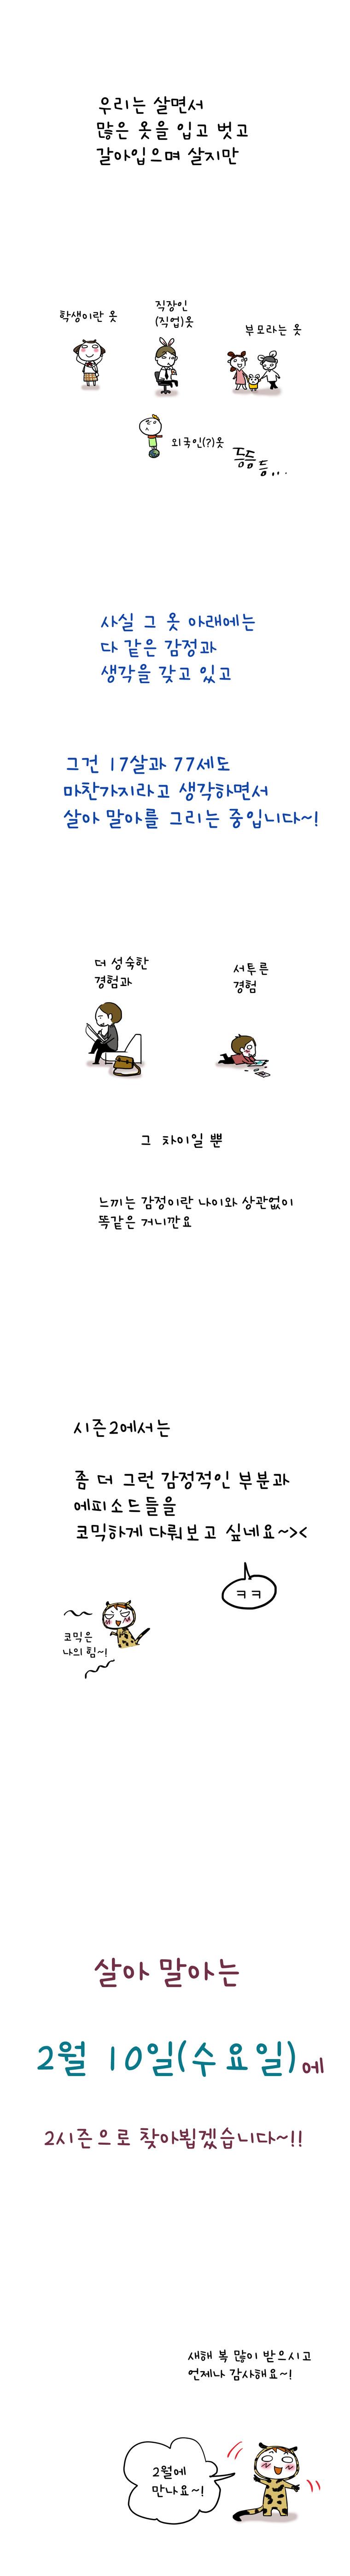 우리는 살면서
많은 옷을 입고 벗고
갈아입으며 살지만
학생이란 옷
직장인
(직업)옷
부모라는 옷
외국인(?)옷
등등
등...
사실 그 옷 아래에는
다 같은 감정과
생각을 갖고 있고
그건 17살과 77세도
마찬가지라고 생각하면서
살아 말아를 그리는 중입니다~!
더 성숙한
경험과
서투른
경험
그 차이일 뿐
느끼는 감정이란 나이와 상관없이
똑같은 거니깐요
시즌2에서는
좀 더 그런 감정적인 부분과
에피소드들을
코믹하게 다뤄보고 싶네요~><
ㅋㅋ
코믹은
나의 힘~!
살아 말아는
2월 10일(수요일)에
2시즌으로 찾아뵙겠습니다~!!
새해 복 많이 받으시고
언제나 감사해요~!
2월에
만나요~!